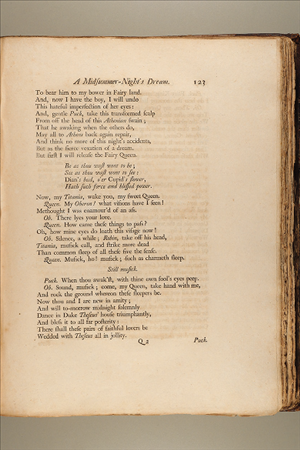 A Midsummer-Night's Dream. 123
To bear him to my bower in Fairy land.
And, now I have the boy, I will undo
This hateful imperfection of her eyes:
And, gentle Puck, take this transformed scalp
From off the head of this Athenian swain;
That he awaking when the others do,
May all to Athens back again repair,
And think no more of this night's accidents,
But as the fierce vexation of a dream.
But first I will release the Fairy Queen.
Be as thou wast wont to be;
See as thou wast wont to see:
Dian's bud, o'er Cupid's flower,
Hath such force and blessed power.
Now, my Titania, wake you, my sweet Queen.
Queen. My Oberon! what visions have I seen!
Methought I was enamour'd of an ass.
Ob. There lyes your love.
Queen. How came these things to pass?
Oh, how mine eyes do loath this visage now!
Ob. Silence, a while; Robin, take off his head,
Titania, musick call, and strike more dead
Than common sleep of all these five the sense.
Queen. Musick, ho! musick; such as charmeth sleep.
Still musick.
Puck. When thou awak'st, with thine own fool's eyes peep.
Ob. Sound, musick; come, my Queen, take hand with me,
And rock the ground whereon these sleepers be.
Now thou and I are new in amity;
And will to-morrow midnight solemnly
Dance in Duke Theseus' house triumphantly,
And bless it to all far posterity:
There shall these pairs of faithful lovers be
Wedded with Theseus all in jollity.
Q 2 Puck.